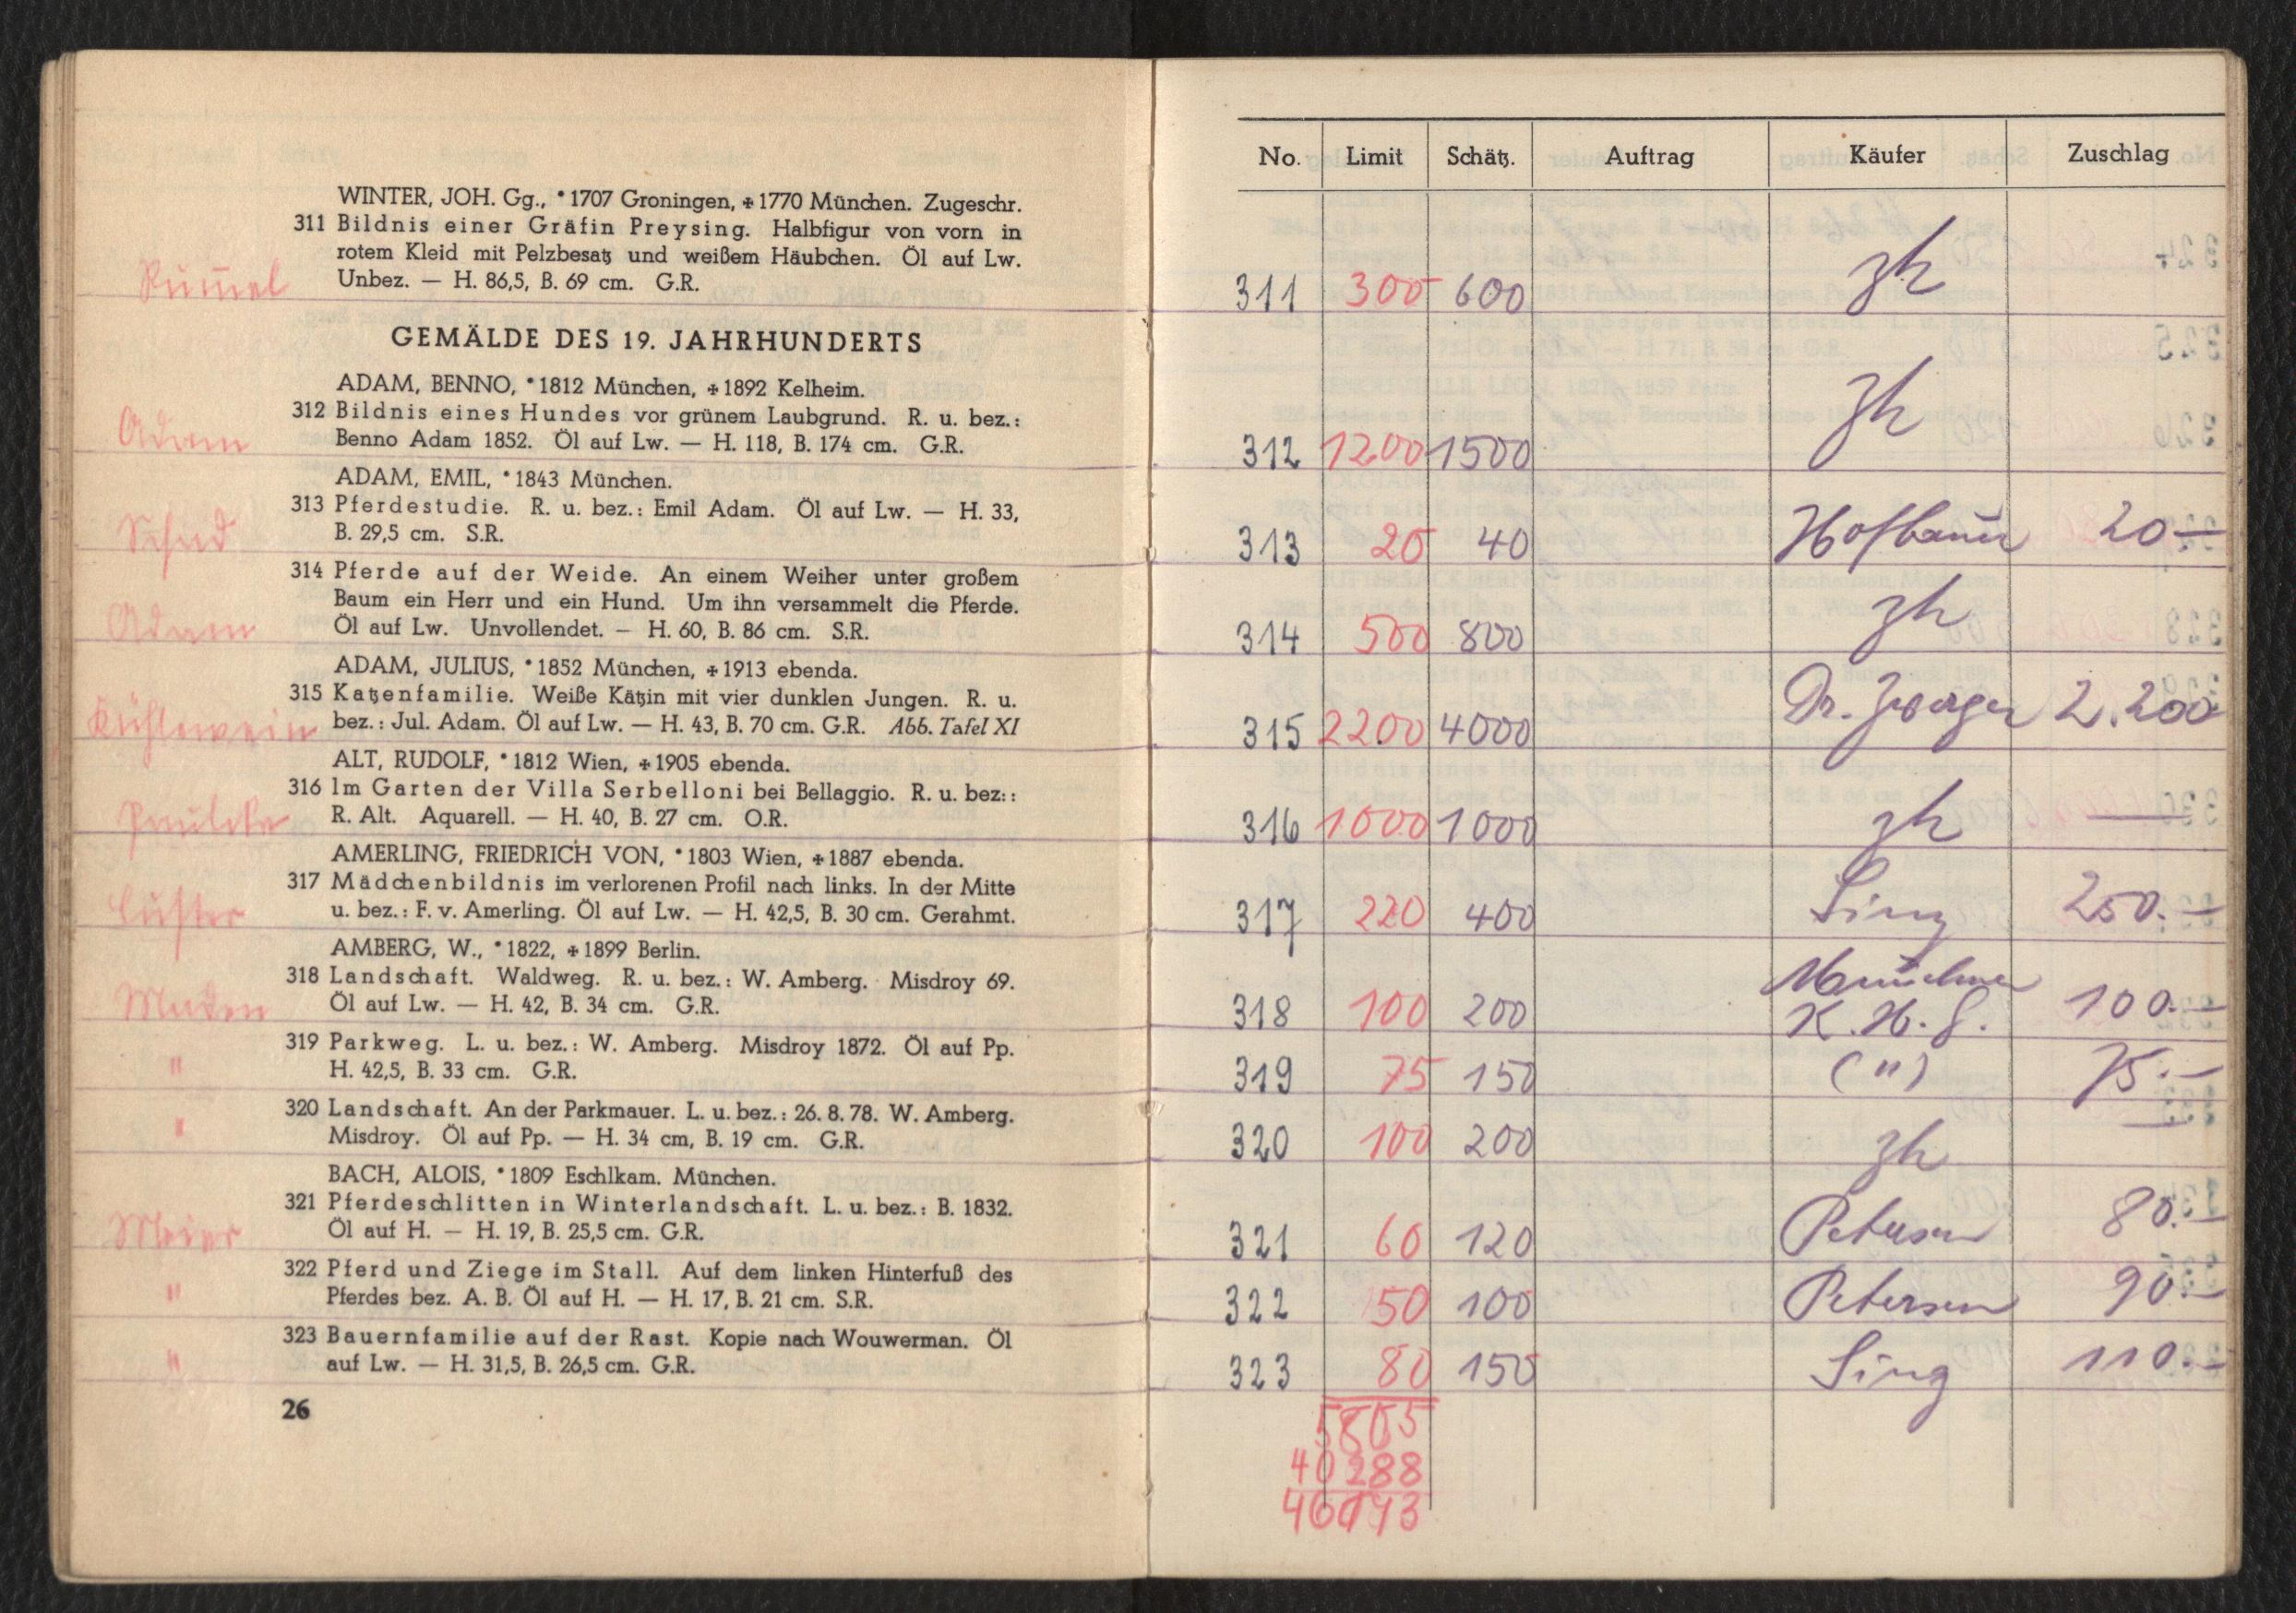 WINTER, JOH. Gg., *1707 Groningen, ✠1770 München. Zugeschr.
311 Bildnis einer Gräfin Preysing. Halbfigur von vorn in
rotem Kleid mit Pelzbesatz und weißem Häubchen. Öl auf Lw.
Unbez. — H. 86,5, B. 69 cm. G.R.
Rum̄el
GEMÄLDE DES 19. JAHRHUNDERTS
ADAM, BENNO, *1812 München, ✠1892 Kelheim.
312 Bildnis eines Hundes vor grünem Laubgrund. R. u. bez.:
Benno Adam 1852. Öl auf Lw. — H. 118, B. 174 cm. G.R.
Adam
ADAM, EMIL, *1843 München.
313 Pferdestudie. R. u. bez.: Emil Adam. Öl auf Lw. — H. 33,
B. 29,5 cm. S.R.
314 Pferde auf der Weide. An einem Weiher unter großem
Baum ein Herr und ein Hund. Um ihn versammelt die Pferde.
Öl auf Lw. Unvollendet. — H. 60, B. 86 cm. S.R.
Adam
ADAM, JULIUS, *1852 München, ✠1913 ebenda.
315 Katzenfamilie. Weiße Kätzin mit vier dunklen Jungen. R. u.
bez.: Jul. Adam. Öl auf Lw. — H. 43, B. 70 cm. G.R. Abb. Tafel XI
Kühlewein
ALT, RUDOLF, *1812 Wien, ✠1905 ebenda.
316 Im Garten der Villa Serbelloni bei Bellaggio. R. u. bez::
R. Alt. Aquarell. — H. 40, B. 27 cm. O.R.
AMERLING, FRIEDRICH VON, *1803 Wien, ✠1887 ebenda.
317 Mädchenbildnis im verlorenen Profil nach links. In der Mitte
u. bez.: F. v. Amerling. Öl auf Lw. — H. 42,5, B. 30 cm. Gerahmt.
Lüster
AMBERG, W., *1822, ✠1899 Berlin.
318 Landschaft. Waldweg. R. u. bez.: W. Amberg. Misdroy 69.
Öl auf Lw. — H. 42, B. 34 cm. G.R.
319 Parkweg. L. u. bez.: W. Amberg. Misdroy 1872. Öl auf Pp.
H. 42,5, B. 33 cm. G.R.
"
320 Landschaft. An der Parkmauer. L. u. bez.: 26. 8. 78. W. Amberg.
Misdroy. Öl auf Pp. — H. 34 cm, B. 19 cm. G.R.
"
BACH, ALOIS, *1809 Eschlkam. München.
321 Pferdeschlitten in Winterlandschaft. L. u. bez.: B. 1832.
Öl auf H. — H. 19, B. 25,5 cm. G.R.
Meier
322 Pferd und Ziege im Stall. Auf dem linken Hinterfuß des
Pferdes bez. A. B. Öl auf H. — H. 17, B. 21 cm. S.R.
"
323 Bauernfamilie auf der Rast. Kopie nach Wouwerman. Öl
auf Lw. — H. 31,5, B. 26,5 cm. G.R.
"
26
No. Limit Schätz. Auftrag Käufer Zuschlag
311 300 600 zh
312 1200 1500 zh
313 20 40 Hofbauer 20—
314 500 800 zh
315 2200 4000 Dr. Zwerger 2.200
316 1000 1000 zh
317 220 400 Sing 250.—
318 100 200 Münchner K. H. G. 100.—
319 75 150 (") 75.—
320 100 200 zh
321 60 120 Petersen 80.—
322 50 100 Petersen 90.—
323 80 150 Sing 110.—
40288